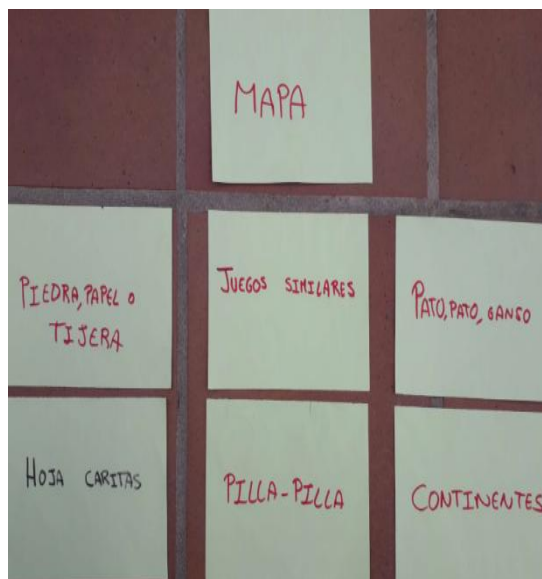 MAPA
PIEDRA, PAPEL O
TIJERA
JUEGOS SIMILARES
PATO, PATO, GANSO
HOJA CARITAS
PILLA-PILLA
CONTINENTES